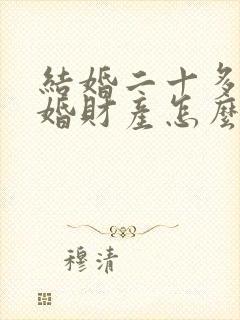 結婚二十多
婚財產怎麼
穆清